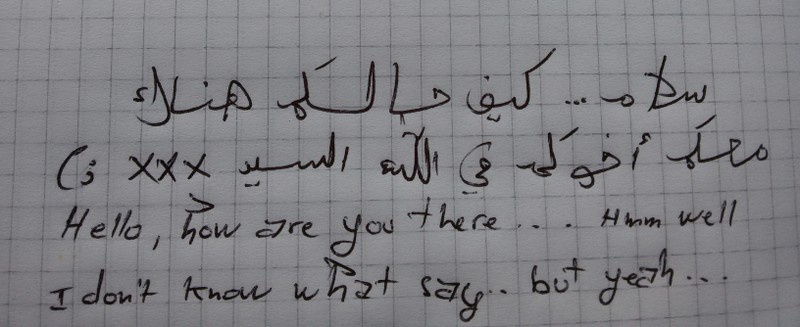 سلام ... كيف حالكم هناك؟
معكم أخوكم في الله السيد xxx ;)
Hello, how are you there .... Hmm well
I don't know what say.. but yeah...